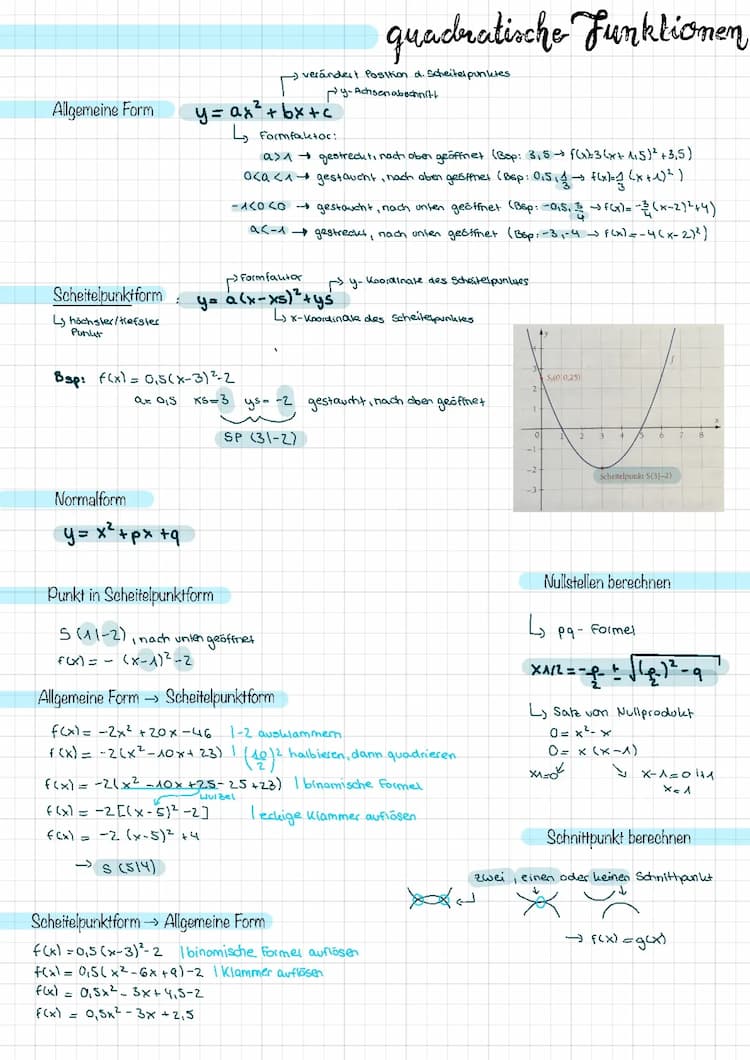 quadratische Funktionen
verändert Position d. Scheitelpunktes
y-Achsenabschnitt
Allgemeine Form y = ax² + bx + c
↳ Formfaktor:
a>1 → gestreckt, nach oben geöffnet (Bsp: 3,5 → f(x)=3(x+1,5)²+3,5)
0<a<1 → gestaucht, nach oben geöffnet (Bsp: 0,5, 1/3 → f(x)=1/3(x+1)²)
-1<0<0 → gestaucht, nach unten geöffnet (Bsp: -0,5, 3/4 → f(x)=-3/4(x-2)²+4)
a<-1 → gestreckt, nach unten geöffnet (Bsp: -3,-4 → f(x)=-4(x-2)²)
Formfaktor
y-Koordinate des Scheitelpunktes
Scheitelpunktform : y = a(x-xs)²+ys
↳ höchster/tiefster Punkt
↳ x-Koordinate des Scheitelpunktes
Bsp: f(x) = 0,5(x-3)²-2
a= 0,5 xs=3 ys= -2 gestaucht, nach oben geöffnet
SP (3|-2)
y
f
3
2
1
0 1 2 3 4 5 6 7 8 x
-1
-2
-3
Scheitelpunkt S(3|-2)
Normalform
y = x² + px + q
Punkt in Scheitelpunktform
S (1|-2), nach unten geöffnet
f(x) = - (x-1)²-2
Allgemeine Form → Scheitelpunktform
f(x) = -2x² + 20x -46 |-2 ausklammern
f(x) = -2(x²-10x+23) | (10/2)² halbieren, dann quadrieren
f(x) = -2(x²-10x+25-25+23) | binomische Formel
Wurzel
f(x) = -2[(x-5)²-2] | eckige Klammer auflösen
f(x) = -2(x-5)² +4
→ S (5|4)
Scheitelpunktform → Allgemeine Form
f(x) = 0,5(x-3)²-2 | binomische Formel auflösen
f(x) = 0,5(x²-6x+9)-2 | Klammer auflösen
f(x) = 0,5x²-3x+4,5-2
f(x) = 0,5x²-3x+2,5
Nullstellen berechnen
↳ pq-Formel
x1/2 = -p/2 ± √((p/2)²-q)
↳ Satz von Nullprodukt
0= x²-x
0= x(x-1)
x1=0 x-1=0 |+1
x=1
Schnittpunkt berechnen
zwei, einen oder keinen Schnittpunkt
→ f(x) = g(x)